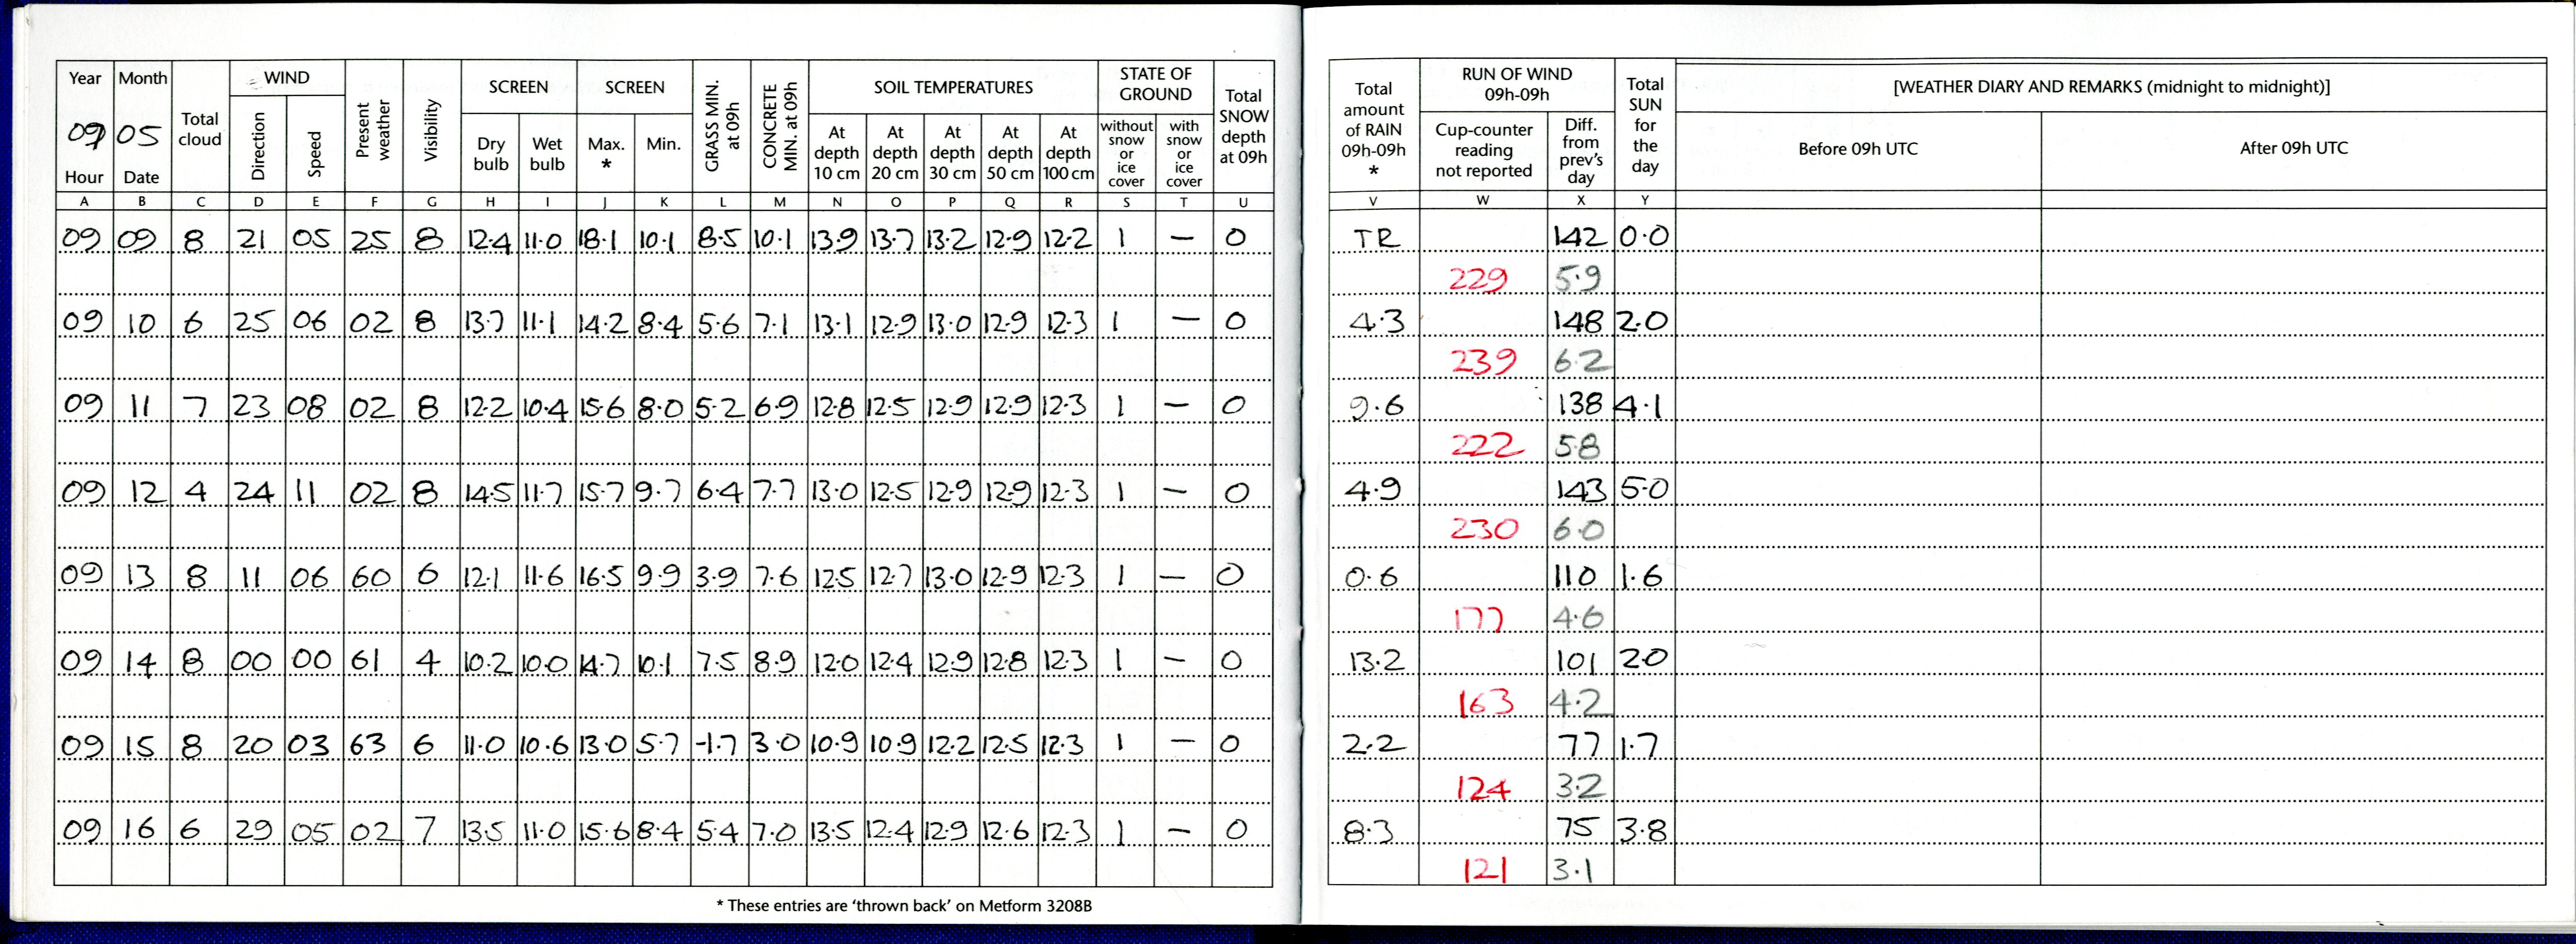 Year Month Total cloud WIND Present weather Visibility SCREEN SCREEN GRASS MIN. at 09h CONCRETE MIN. at 09h SOIL TEMPERATURES STATE OF GROUND Total SNOW depth at 09h Total amount of RAIN 09h-09h * RUN OF WIND 09h-09h Total SUN for the day [WEATHER DIARY AND REMARKS (midnight to midnight)]
09 05 Direction Speed Dry bulb Wet bulb Max. * Min. At depth 10 cm At depth 20 cm At depth 30 cm At depth 50 cm At depth 100 cm without snow or ice cover with snow or ice cover Cup-counter reading not reported Diff. from prev's day Before 09h UTC After 09h UTC
Hour Date
A B C D E F G H I J K L M N O P Q R S T U V W X Y
09 09 8 21 05 25 8 12.4 11.0 18.1 10.1 8.5 10.1 13.9 13.7 13.2 12.9 12.2 1 — 0 TR 142 0.0
229 5.9
09 10 6 25 06 02 8 13.7 11.1 14.2 8.4 5.6 7.1 13.1 12.9 13.0 12.9 12.3 1 — 0 4.3 148 2.0
239 6.2
09 11 7 23 08 02 8 12.2 10.4 15.6 8.0 5.2 6.9 12.8 12.5 12.9 12.9 12.3 1 — 0 9.6 138 4.1
222 5.8
09 12 4 24 11 02 8 14.5 11.7 15.7 9.7 6.4 7.7 13.0 12.5 12.9 12.9 12.3 1 — 0 4.9 143 5.0
230 6.0
09 13 8 11 06 60 6 12.1 11.6 16.5 9.9 3.9 7.6 12.5 12.7 13.0 12.9 12.3 1 — 0 0.6 110 1.6
177 4.6
09 14 8 00 00 61 4 10.2 10.0 14.7 10.1 7.5 8.9 12.0 12.4 12.9 12.8 12.3 1 — 0 13.2 101 2.0
163 4.2
09 15 8 20 03 63 6 11.0 10.6 13.0 5.7 -1.7 3.0 10.9 10.9 12.2 12.5 12.3 1 — 0 2.2 77 1.7
124 3.2
09 16 6 29 05 02 7 13.5 11.0 15.6 8.4 5.4 7.0 13.5 12.4 12.9 12.6 12.3 1 — 0 8.3 75 3.8
121 3.1
* These entries are ‘thrown back’ on Metform 3208B